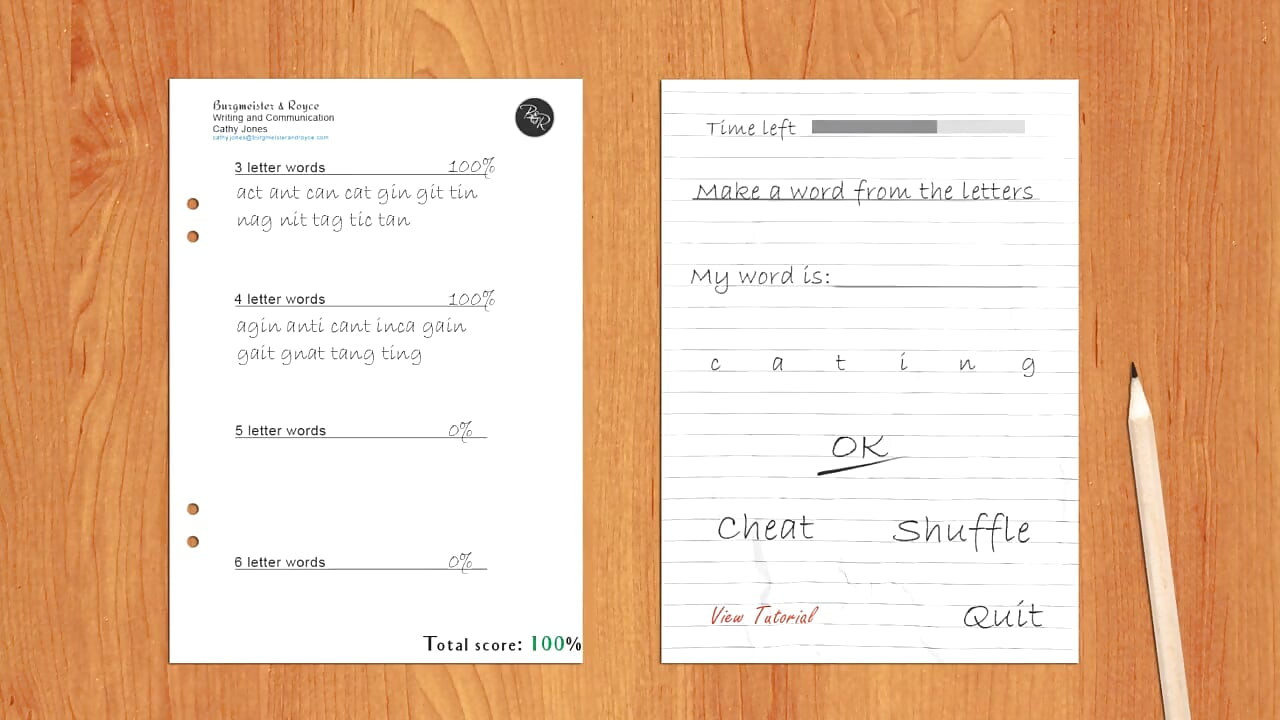 Burgmeister & Royce
Writing and Communication
Cathy Jones
cathy.jones@burgmeisterandroyce.com
B&R
3 letter words 100%
act ant can cat gin git tin
nag nit tag tic tan
4 letter words 100%
agin anti cant inca gain
gait gnat tang ting
5 letter words 0%
6 letter words 0%
Total score: 100%
Time left
Make a word from the letters
My word is:
c a t i n g
OK
Cheat Shuffle
View Tutorial Quit